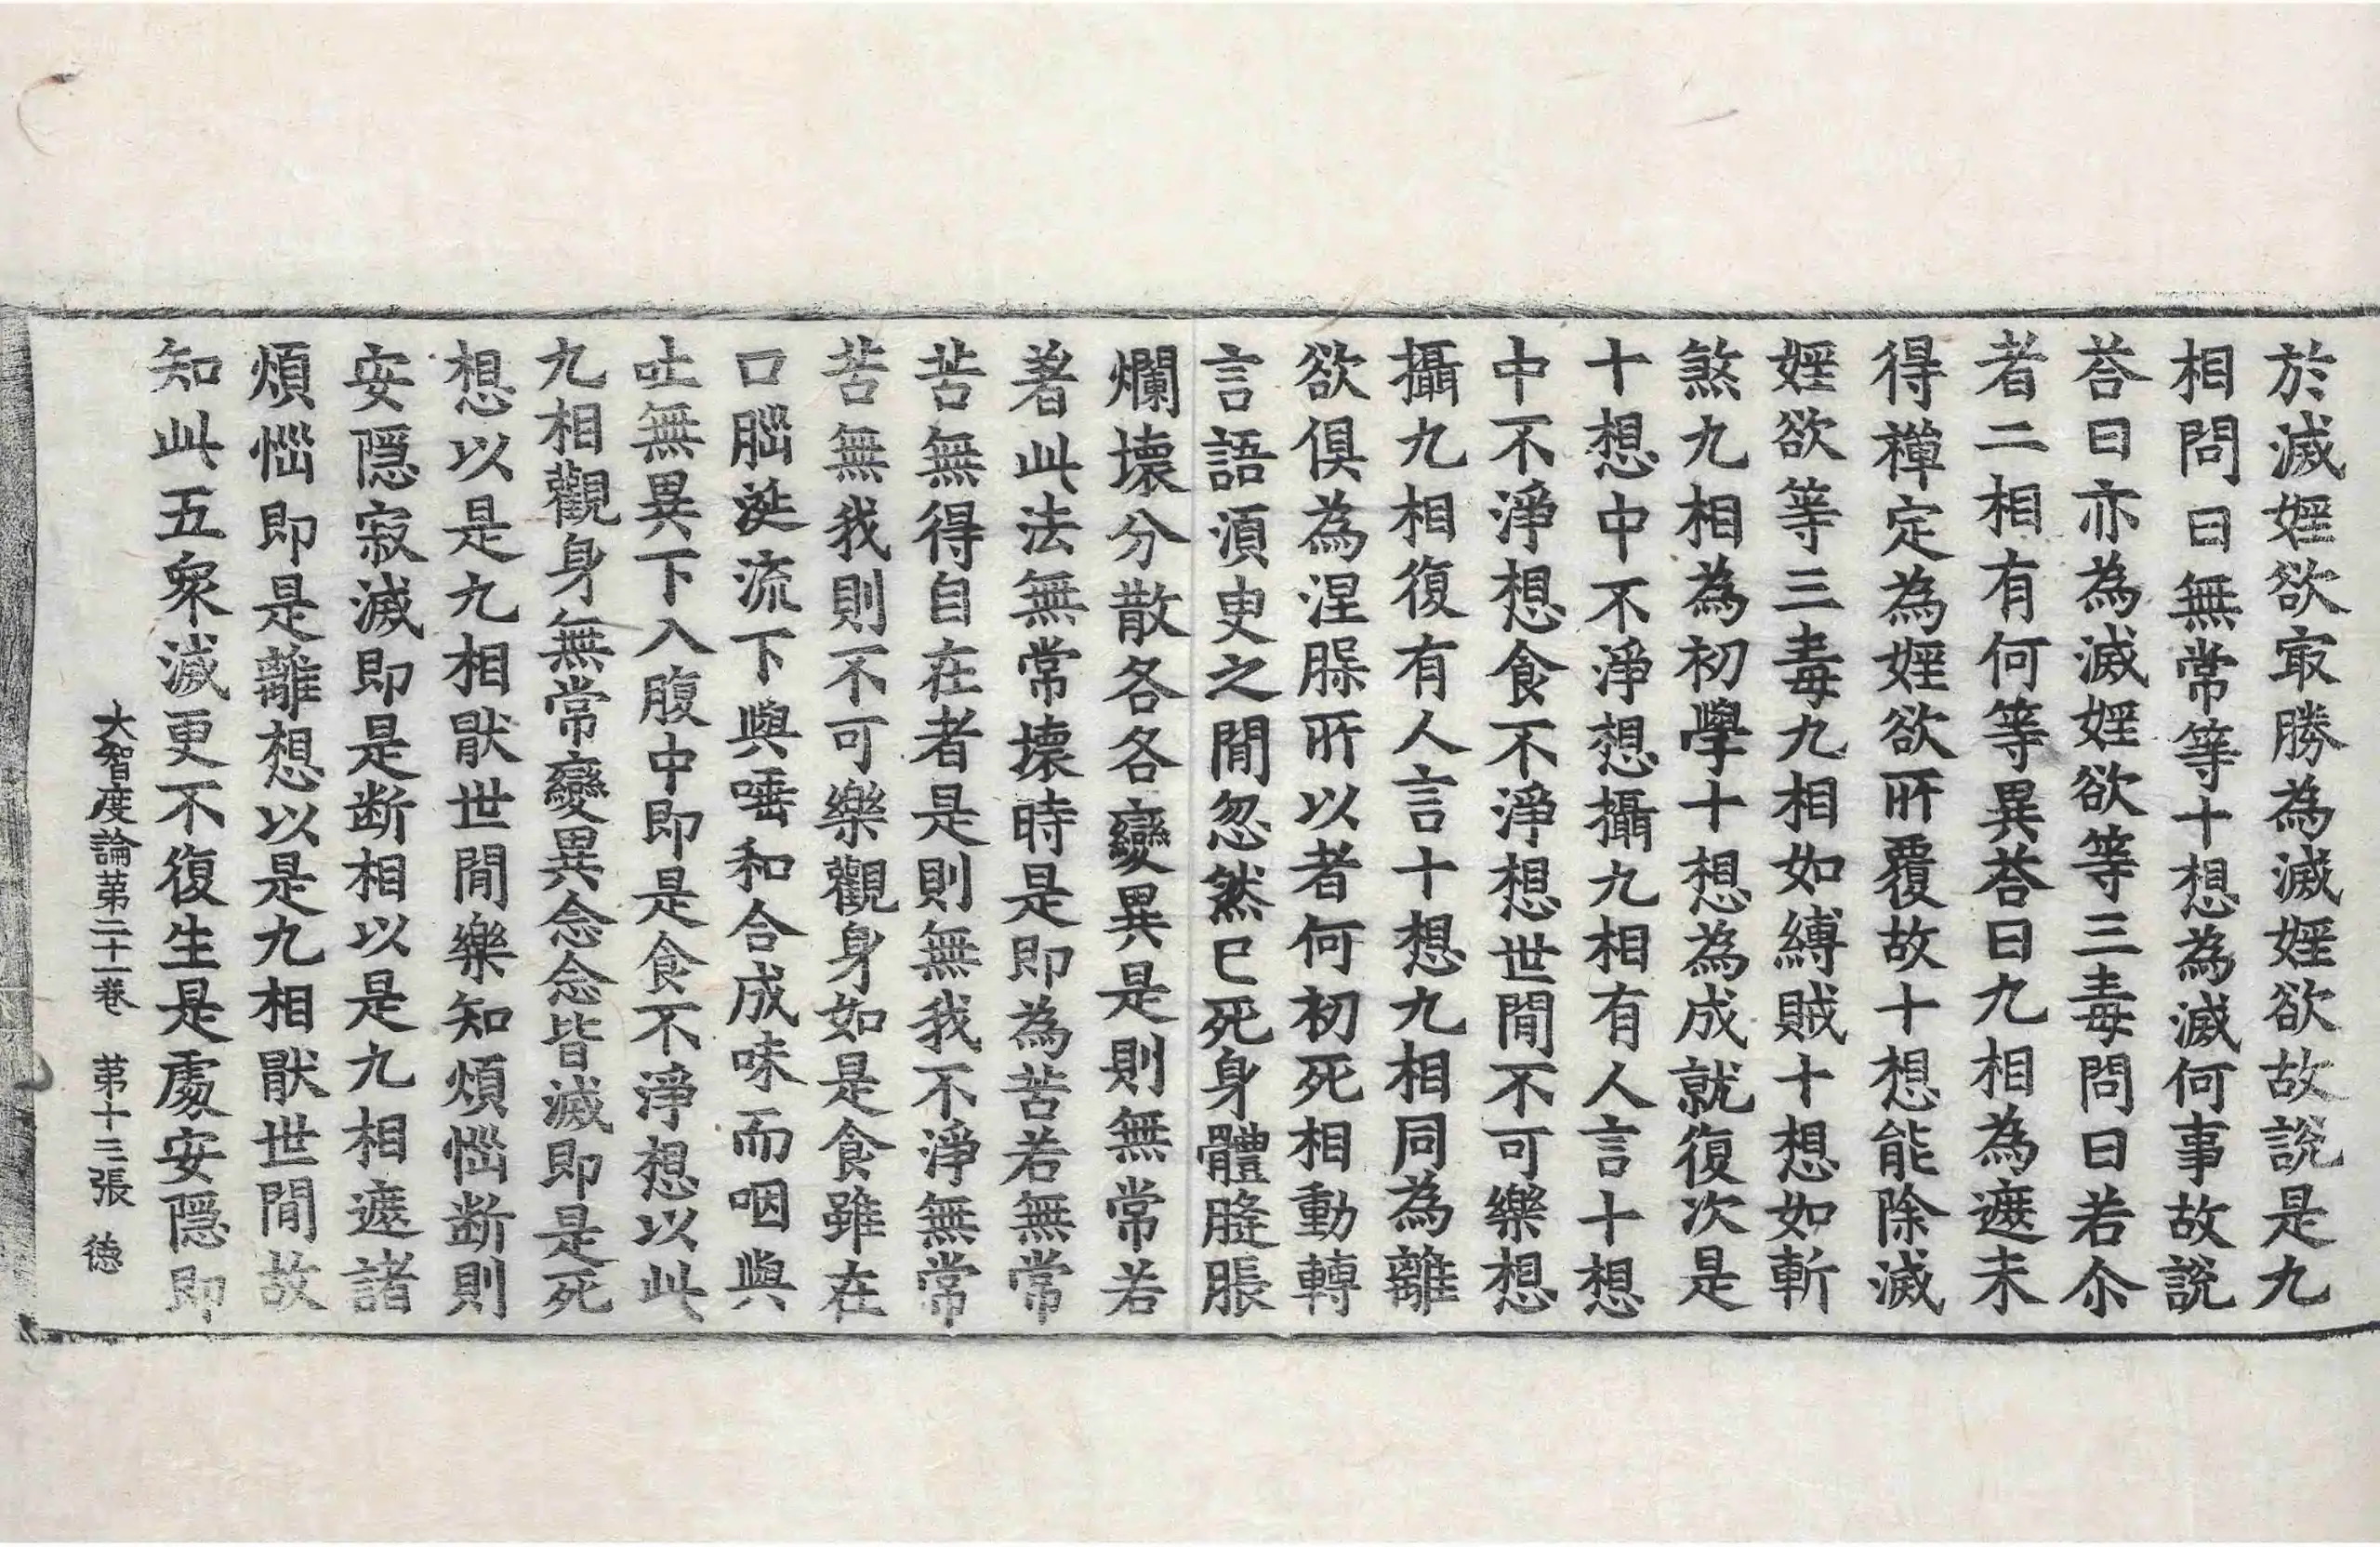 於滅婬欲㝡勝為滅婬欲故說是九
相問曰無常等十想為滅何事故說
荅曰亦為滅婬欲等三毒問曰若尒
者二相有何等異荅曰九相為遮未
得禪定為婬欲所覆故十想能除滅
婬欲等三毒九相如縛賊十想如斬
煞九相為初學十想為成就復次是
十想中不淨想攝九相有人言十想
中不淨想食不淨想世閒不可樂想
攝九相復有人言十想九相同為離
欲俱為涅槃所以者何初死相動轉
言語須臾之閒忽然已死身體膖脹
爛壞分散各各變異是則無常若
著此法無常壞時是即為苦若無常
苦無得自在者是則無我不淨無常
苦無我則不可樂觀身如是食雖在
口腦涎流下與唾和合成味而咽與
吐無異下入腹中即是食不淨想以此
九相觀身無常變異念念皆滅即是死
想以是九相猒世閒樂知煩惱断則
安隱寂滅即是断相以是九相遮諸
煩惱即是離想以是九相猒世閒故
知此五眾滅更不復生是處安隱即
大智度論苐二十一卷　苐十三張　徳